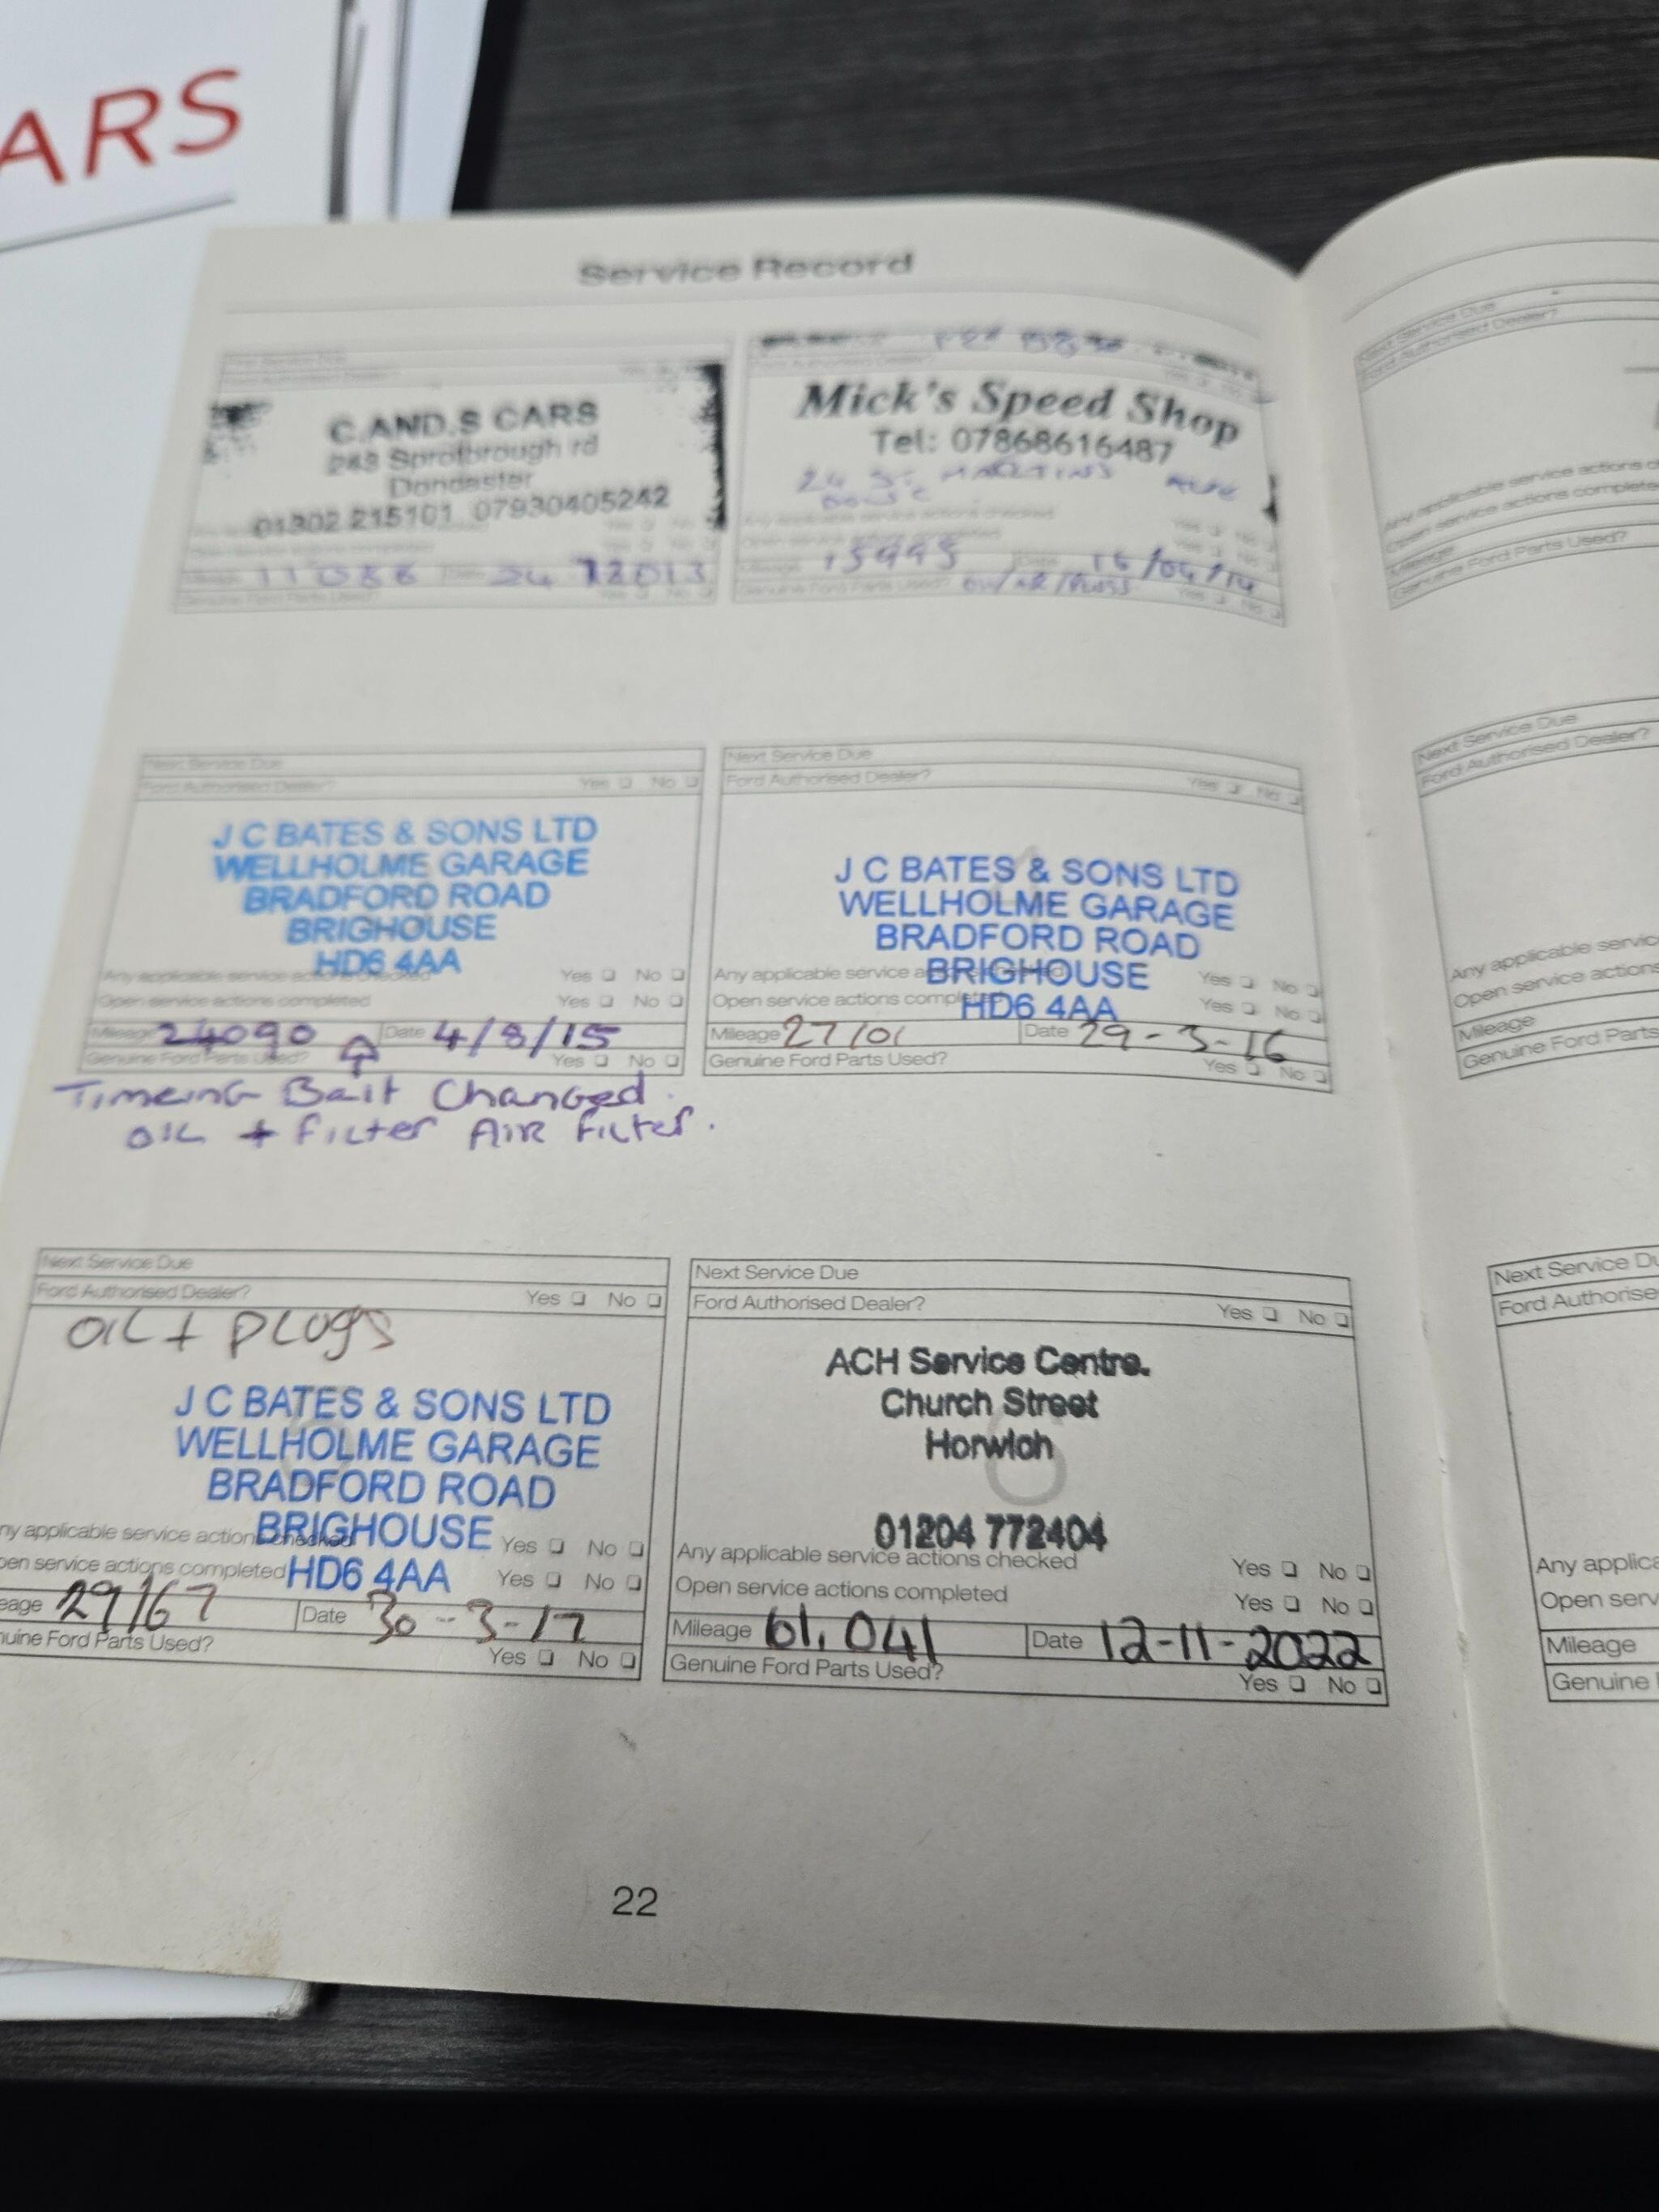 ARS
Service Record
C.AND.S CARS
Sprotbrough rd
Doncaster
01302 215101 07930405242
11086
Mick's Speed Shop
Tel: 07868616487
24 St MARTINS AVE
Any applicable service actions checked
Mileage 15995 Date 16/04/14
Genuine Ford Parts Used? Yes ❑ No ❑
Next Service Due
Ford Authorised Dealer? Yes ❑ No ❑
J C BATES & SONS LTD
WELLHOLME GARAGE
BRADFORD ROAD
BRIGHOUSE
HD6 4AA
Any applicable service actions checked Yes ❑ No ❑
Open service actions completed Yes ❑ No ❑
Mileage 24090 Date 4/8/15
Genuine Ford Parts Used? Yes ❑ No ❑
Timeing Balt Changed.
OIL + filter AIR filter.
Next Service Due
Ford Authorised Dealer? Yes ❑ No ❑
J C BATES & SONS LTD
WELLHOLME GARAGE
BRADFORD ROAD
BRIGHOUSE
HD6 4AA
Any applicable service a Yes ❑ No ❑
Open service actions complet Yes ❑ No ❑
Mileage 27101 Date 29-3-16
Genuine Ford Parts Used? Yes ❑ No ❑
Next Service Due
Ford Authorised Dealer? Yes ❑ No ❑
OIL + PLUGS
J C BATES & SONS LTD
WELLHOLME GARAGE
BRADFORD ROAD
BRIGHOUSE
HD6 4AA
ny applicable service actions checked Yes ❑ No ❑
pen service actions completed Yes ❑ No ❑
eage 29167 Date 30-3-17
nuine Ford Parts Used? Yes ❑ No ❑
Next Service Due
Ford Authorised Dealer? Yes ❑ No ❑
ACH Service Centre.
Church Street
Horwich
6
01204 772404
Any applicable service actions checked Yes ❑ No ❑
Open service actions completed Yes ❑ No ❑
Mileage 61,041 Date 12-11-2022
Genuine Ford Parts Used? Yes ❑ No ❑
22
Next Service Due
Ford Authorised Dealer?
Any applicable service actions c
Open service actions complete
Mileage
Genuine Ford Parts Used?
Next Service Due
Ford Authorised Dealer?
Any applicable servic
Open service actions
Mileage
Genuine Ford Parts
Next Service Du
Ford Authorise
Any applica
Open serv
Mileage
Genuine